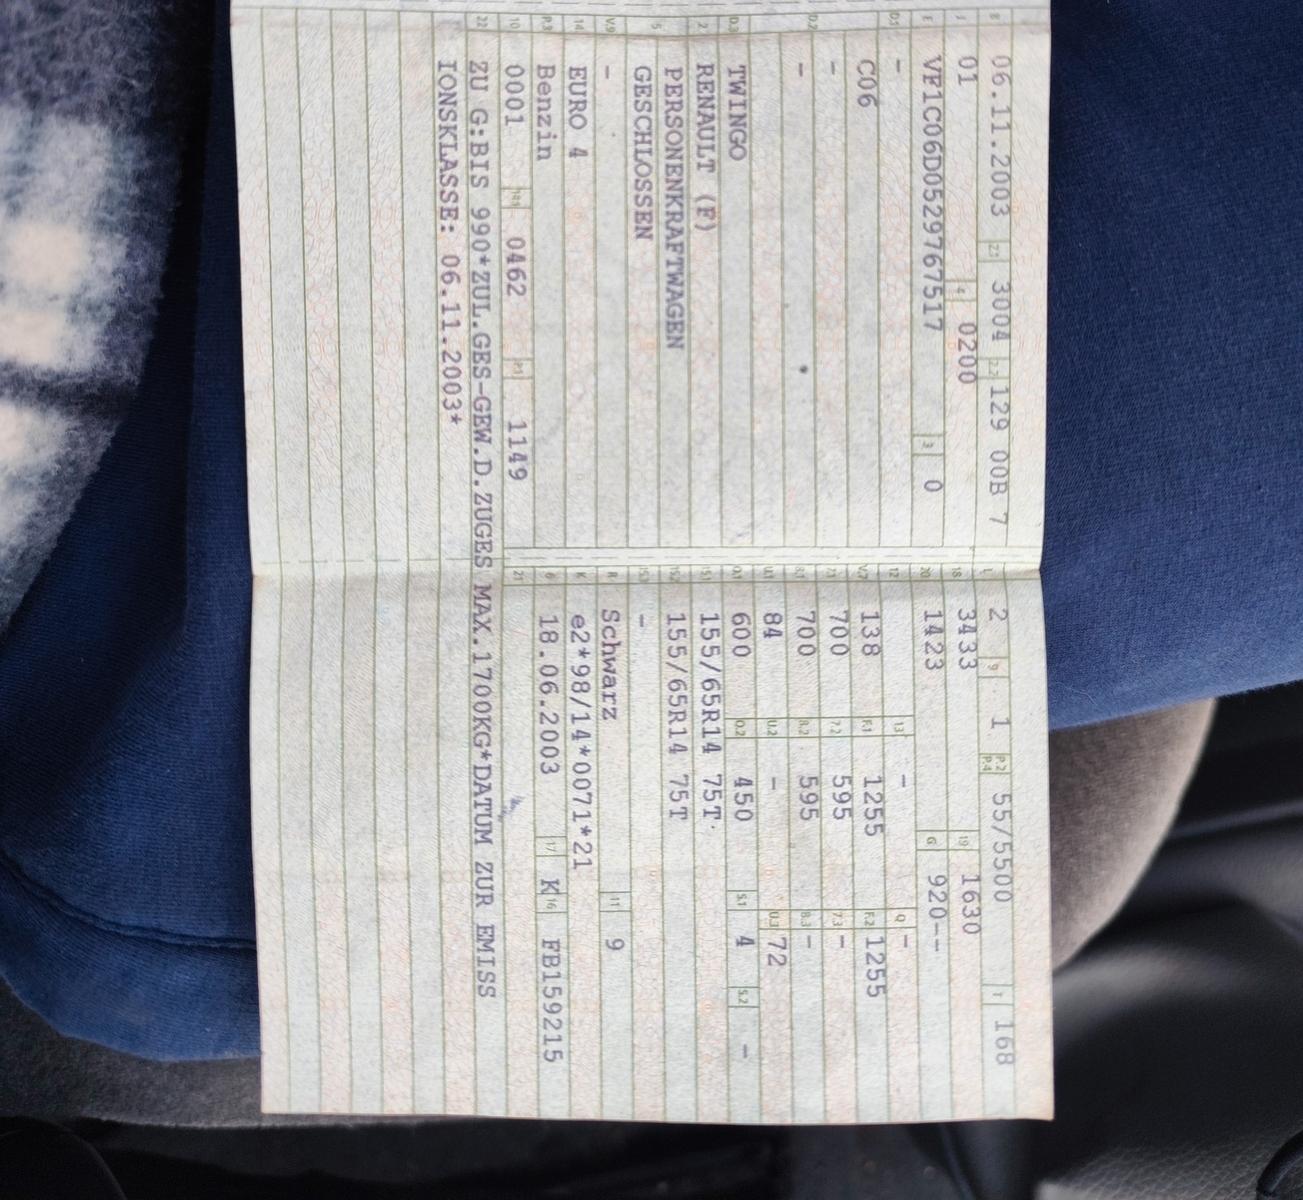 B 06.11.2003 2.1 3004 2.2 129 00B 7
J 01 4 0200
E VF1C06D0529767517 3 0
D.1 -
C06
-
D.2 -
D.3 TWINGO
2 RENAULT (F)
PERSONENKRAFTWAGEN
5 GESCHLOSSEN
V.9 -
14 EURO 4
P.3 Benzin
10 0001 14.1 0462 P.1 1149
L 2 9 1 P.2 P.4 55/5500 T 168
18 3433 19 1630
20 1423 G 920--
12 13 - Q -
V.7 138 F.1 1255 F.2 1255
7.1 700 7.2 595 7.3 -
8.1 700 8.2 595 8.3 -
U.1 84 U.2 - U.3 72
O.1 600 O.2 450 S.1 4 S.2 -
15.1 155/65R14 75T
15.2 155/65R14 75T
15.3 -
R Schwarz 11 9
K e2*98/14*0071*21
6 18.06.2003 17 K 16 FB159215
21
22 ZU G:BIS 990*ZUL.GES-GEW.D.ZUGES MAX.1700KG*DATUM ZUR EMISS
IONSKLASSE: 06.11.2003*